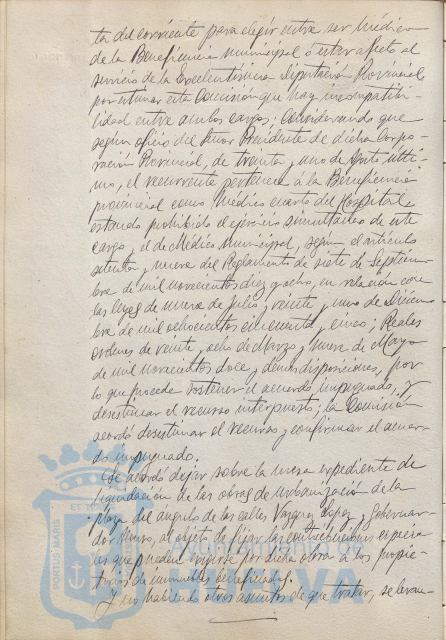 ta del corriente para elegir entre ser Médico
de la Beneficencia municipal ó estar afecto al
servicio de la Excelentísima Diputación Provincial
por estimar esta Comisión que hay incompatibi-
lidad entre ambos cargos; Considerando que
según oficio del Señor Presidente de dicha Corpo-
ración Provincial, de treinta y uno de Agosto últi-
mo, el recurrente pertenece á la Beneficencia
provincial como Médico cuarto del Hospital
estando prohibido el ejercicio simultáneo de este
cargo y el de Médico Municipal, según el artículo
setenta y nueve del Reglamento de siete de Septiem-
bre de mil novecientos diez y ocho, en relación con
las leyes de nueve de Julio, veinte y uno de Diciem-
bre de mil ochocientos cincuenta y cinco; Reales
ordenes de veinte y ocho de Marzo y nueve de Mayo
de mil novecientos doce y demas disposiciones, por
lo que procede sostener el acuerdo impugnado, y
desestimar el recurso interpuesto; la Comisión
acordó desestimar el recurso y confirmar el acuer-
do impugnado.
Se acordó dejar sobre la mesa expediente de
liquidación de las obras de urbanización de la
Plaza del ángulo de las calles Vazquez Lopez y Gobernador
Alonso, al objeto de fijar las contribuciones especia-
les que pueden exigirse por dicha obra á los propie-
tarios de inmuebles beneficiados.
Y no habiendo otros asuntos de que tratar, se levan-
PORTUS MARIS
ET
Ayuntamiento de
HUELVA